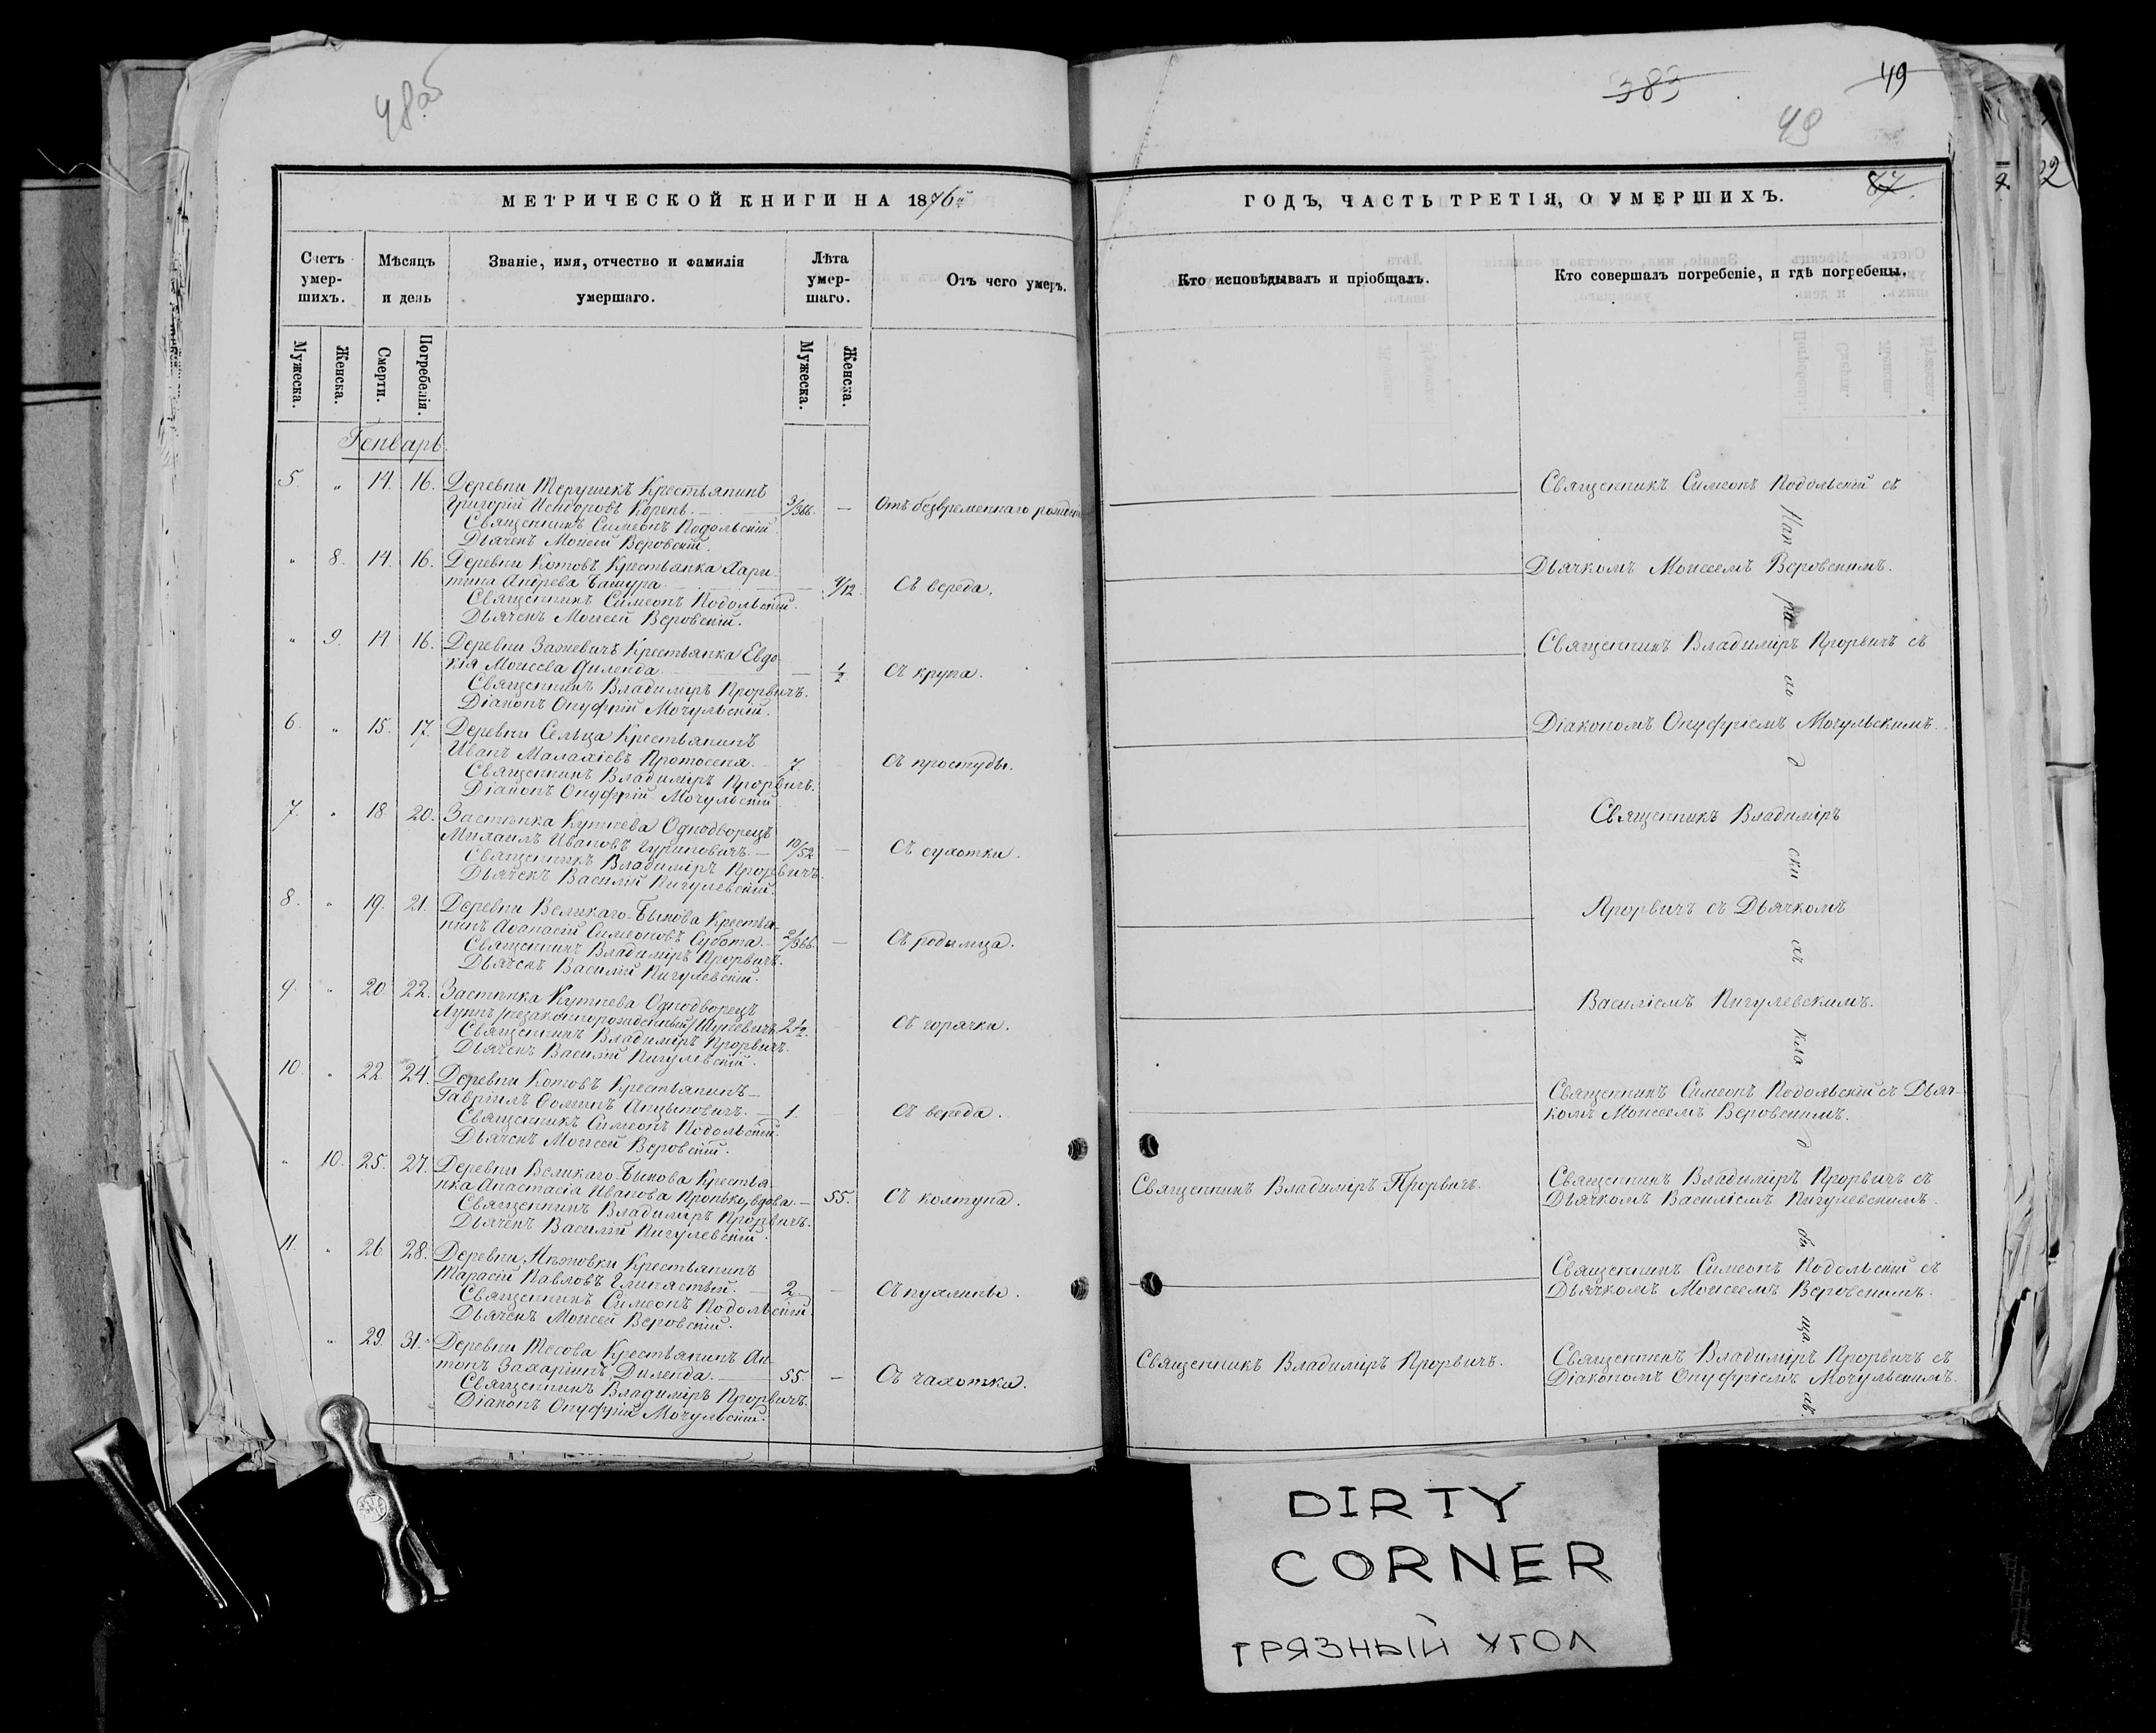 48об
383
49
49
77.
МЕТРИЧЕСКОЙ КНИГИ НА 1876й
ГОДЪ, ЧАСТЬ ТРЕТІЯ, О УМЕРШИХЪ.
Счетъ умер-шихъ.
Мѣсяцъ и день
Званіе, имя, отчество и фамилія умершаго.
Лѣта умер-шаго.
Отъ чего умеръ.
Кто исповѣдывалъ и пріобщалъ.
Кто совершалъ погребеніе, и гдѣ погребены.
Мужеска.
Женска.
Смерти.
Погребенія.
Мужеска.
Женска.
Генварь
5. " 14. 16. Деревни Терушекъ Крестьянинъ
Григорій Исидоровъ Корень. 3/366. — Отъ безвременнаго рожденія
Священникъ Симеонъ Подольскій.
Дьячекъ Моисей Веровскій.
Священникъ Симеонъ Подольскій съ
Дьячкомъ Моисеемъ Веровскимъ.
" 8. 14. 16. Деревни Котовъ Крестьянка Хари-
тина Андреева Башура. — 4/12 Съ вереда.
Священникъ Симеонъ Подольскій.
Дьячекъ Моисей Веровскій.
" 9. 14 16. Деревни Заневичъ Крестьянка Евдо-
кія Моисеева Диленда. — 1/2 Съ крупа.
Священникъ Владиміръ Прорвичъ.
Діаконъ Онуфрій Мочульскій.
Священникъ Владиміръ Прорвичъ съ
Діакономъ Онуфріемъ Мочульскимъ.
6. " 15. 17. Деревни Сельца Крестьянинъ
Иванъ Малахіевъ Протосеня. 7. — Съ простуды.
Священникъ Владиміръ Прорвичъ.
Діаконъ Онуфрій Мочульскій
7. " 18 20. Застѣнка Кутнева Однодворецъ
Михаилъ Ивановъ Гуриновичъ. 10/52 — Съ сухотки.
Священникъ Владиміръ Прорвичъ.
Дьячекъ Василій Пигулевскій.
Священникъ Владиміръ
Прорвичъ съ Дьячкомъ
Василіемъ Пигулевскимъ.
8. " 19. 21. Деревни Великаго-Быкова Крестья-
нинъ Аѳанасій Симеоновъ Субота. 21/366. — Съ родимца.
Священникъ Владиміръ Прорвичъ.
Дьячекъ Василій Пигулевскій.
9. " 20. 22. Застѣнка Кутнева Однодворецъ
Лупъ /незаконнорожденный/ 2 1/2. Съ горячки.
Священникъ Владиміръ Прорвичъ.
Дьячекъ Василій Пигулевскій.
10. " 22. 24. Деревни Котовъ Крестьянинъ
Гавріилъ Ѳоминъ Анцыповичъ. 1. Съ вереда.
Священникъ Симеонъ Подольскій.
Дьячекъ Моисей Веровскій.
Священникъ Симеонъ Подольскій съ Дьяч-
комъ Моисеемъ Веровскимъ.
" 10. 25. 27. Деревни Великаго-Быкова Крестья-
нка Анастасія Иванова Пронько, вдова. — 55. Съ колтуна.
Священникъ Владиміръ Прорвичъ.
Дьячекъ Василій Пигулевскій.
Священникъ Владиміръ Прорвичъ.
Священникъ Владиміръ Прорвичъ съ
Дьячкомъ Василіемъ Пигулевскимъ.
11. " 26. 28. Деревни Крестьянинъ
Тарасій Павловъ Глинястый. 2. — Съ пухлины.
Священникъ Симеонъ Подольскій.
Дьячекъ Моисей Веровскій.
Священникъ Симеонъ Подольскій съ
Дьячкомъ Моисеемъ Веровскимъ.
" 29. 31. Деревни Тесова Крестьянинъ Ан-
тонъ Захаріинъ Диленда. 55. — Съ чахотки.
Священникъ Владиміръ Прорвичъ.
Діаконъ Онуфрій Мочульскій.
Священникъ Владиміръ Прорвичъ.
Священникъ Владиміръ Прорвичъ съ
Діакономъ Онуфріемъ Мочульскимъ.
На при хо д ски хъ кла д би ща хъ.
DIRTY
CORNER
ГРЯЗНЫЙ УГОЛ